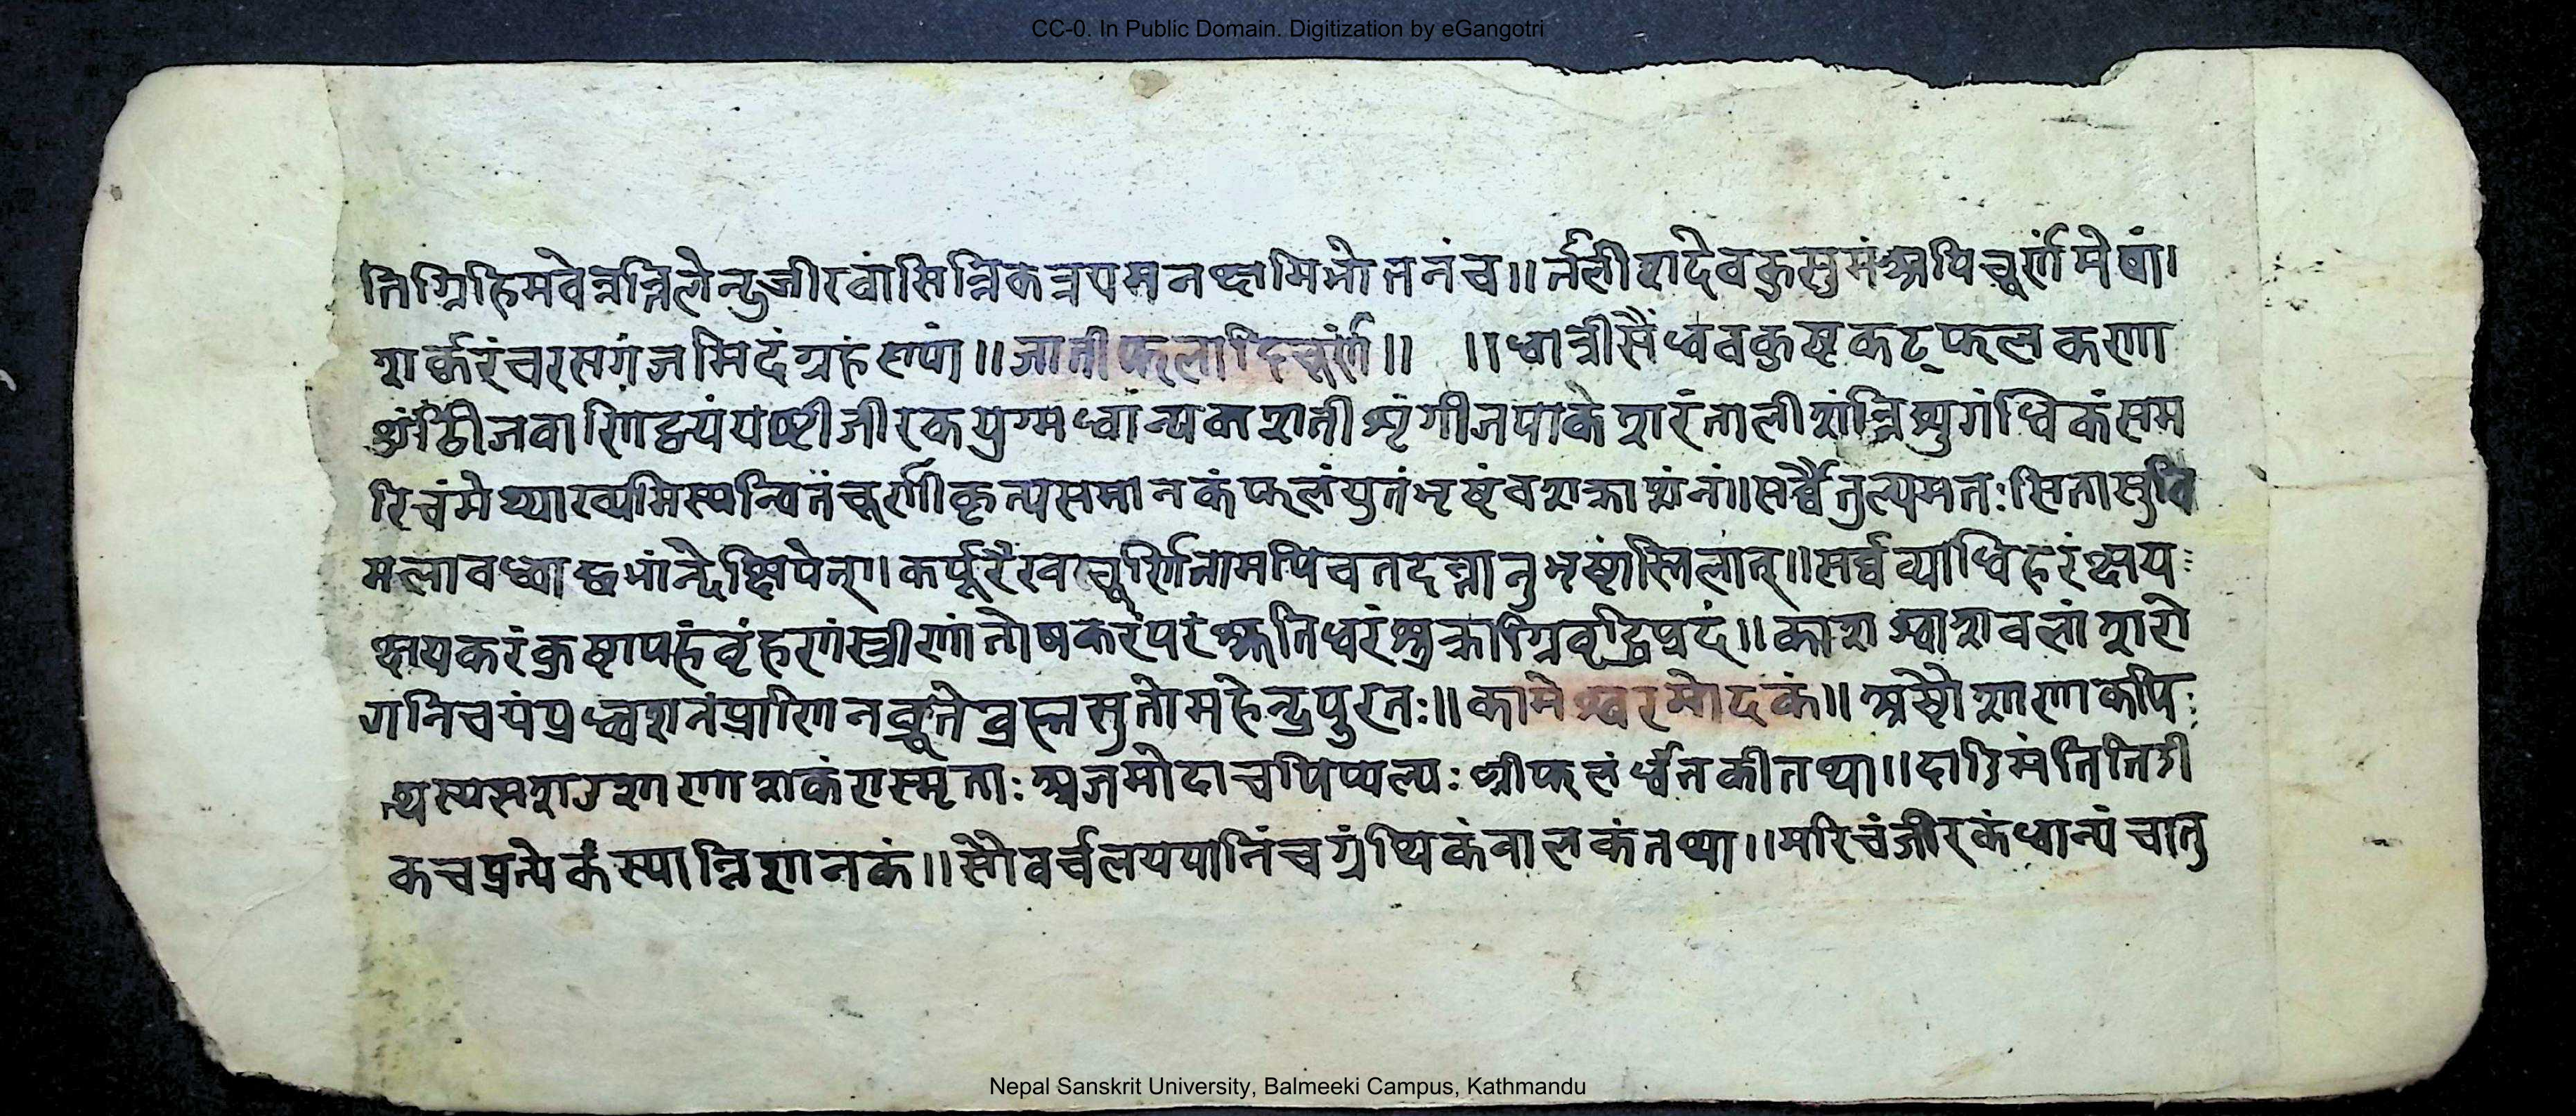 CC-0. In Public Domain. Digitization by eGangotri
तिग्निहिमवेत्रन्निलेन्दुजीरवांसिन्निकत्रयमनक्षामिमोतनंच॥र्तलीशदेवकुसुमंअपिचूर्णमेषां।
शर्करंचरसगंजमिदंग्रहं॥जातीफलादिचूर्णं॥ ॥धात्रीसैंधवकुष्टकट्फलकणा
शुंठीजवारिणद्वयंयष्टीजीरकयुग्मधान्यकशतीशृंगीजपाकेशरंतालीशंन्निश्युगंधिकंसम
रिचंमेथ्याख्यमिस्यन्वितंचूर्णीकृत्यसमानकंफलंयुतंभृष्टंवशक्राशनं॥सर्व्वैतुल्यमतःसितासुवि
मलावध्वाद्धभांन्देक्षिपेत्।कर्पूरैरवचूर्णितामपिचतदत्नानुभृष्टांस्तिलान्॥सर्व्वव्याधिहरंक्षय
क्षयकरंकुष्टापहंवृंहरणंस्त्रीणांतोषकरंपरंक्षतिधरंशुक्राग्निवृद्धिप्रदं॥काशश्वाशवलांशरो
गनिचयंप्रध्वशनंप्राणिनब्रूतेब्रह्मसुतोमहेन्द्रपुरतः॥कामेश्वरमोदकं॥अष्टौशाणाकपि
थ्यस्यसशउशाणाशर्करास्मृताःअजमोदाचपिप्यल्यःश्रीफलंर्धातकीतथा॥दाडिमंतितिडी
कचप्रत्येकंस्यान्निशानकं॥सौवर्चलययानिंचग्रंथिकंवालकंतथा॥मरिचंजीरकंधान्यंचातु
Nepal Sanskrit University, Balmeeki Campus, Kathmandu